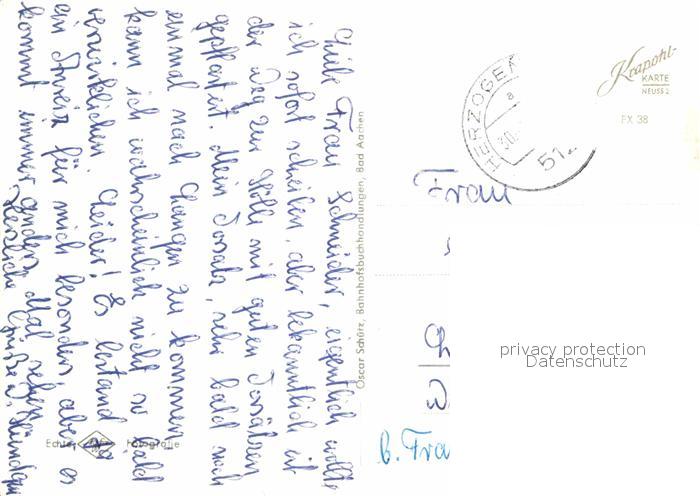 Liebe Frau Schneider, eigentlich wollte
ich sofort schreiben, aber bekanntlich ist
der Weg zur Hölle mit guten Vorsätzen
gepflastert. Mein Vorsatz, sehr bald noch
einmal nach Langen zu kommen
kann ich wahrscheinlich nicht so bald
verwirklichen. Leider! Es bestand
ein Anreiz für mich besonders, aber es
kommt immer anders. Mal sehen
Herzliche Grüße
Oscar Schürz, Bahnhofsbuchhandlungen, Bad Aachen
Echte Fotografie
HERZOGEN
a
30.
512
Krapohl-
KARTE
NEUSS 2
FX 38
Frau
privacy protection
Datenschutz
b. Fra